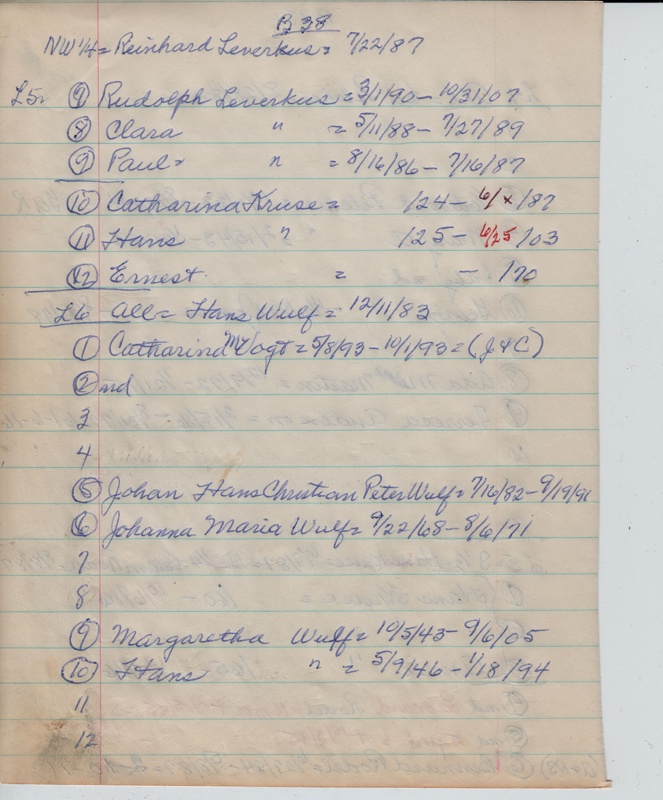 B 38
NW 1/4 = Reinhard Leverkus = 7/22/87
L5 = 7 Rudolph Leverkus = 3/1/90 - 10/31/07
8 Clara " = 5/11/88 - 7/27/89
9 Paul = " = 8/16/86 - 7/16/87
10 Catharina Kruse = /24 - 6/x/87
11 Hans " /25 - 6/25/03
12 Ernest = - /70
L6 All = Hans Wulf = 12/11/83
1 Catharina M Vogt = 5/8/93 - 10/1/93 = (J & C)
2 nd
3
4
5 Johan Hans Christian Peter Wulf = 7/16/82 - 9/19/91
6 Johanna Maria Wulf = 9/22/68 - 8/6/71
7
8
9 Margaretha Wulf = 10/5/43 - 9/6/05
10 Hans " = 5/9/46 - 1/18/94
11
12